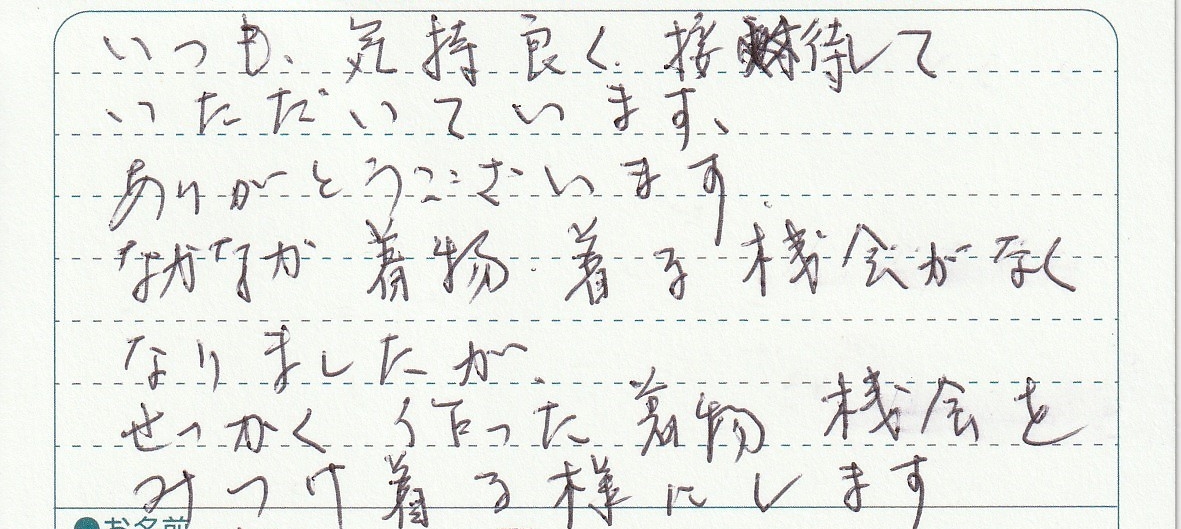 いつも、気持良く接待して
いただいています、
ありがとうございます
なかなか着物着る機会がなく
なりましたが、
せっかく作った着物機会を
みつけ着る様にします
●お名前